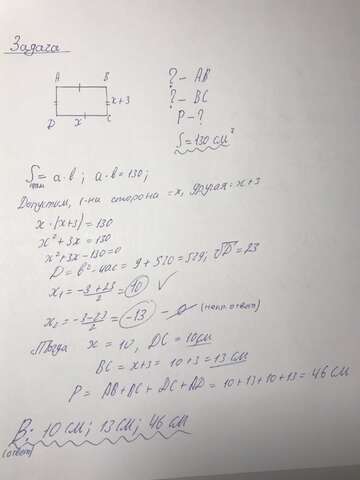 Задача
A B
? - AB
x+3
? - BC
D x C
P - ?
S = 130 см²
Sпрям = a · b ; a · b = 130;
Допустим, 1-на сторона = x, другая = x+3
x · (x+3) = 130
x² + 3x = 130
x² + 3x - 130 = 0
D = b² - 4ac = 9 + 520 = 529; √D = 23
x₁ = (-3+23)/2 = 10 ✓
x₂ = (-3-23)/2 = -13 - ∅
Тогда x = 10, DC = 10см
BC = x+3 = 10+3 = 13 см
P = AB + BC + DC + AD = 10+13+10+13 = 46 см
В: 10 см; 13 см; 46 см
(ответ)